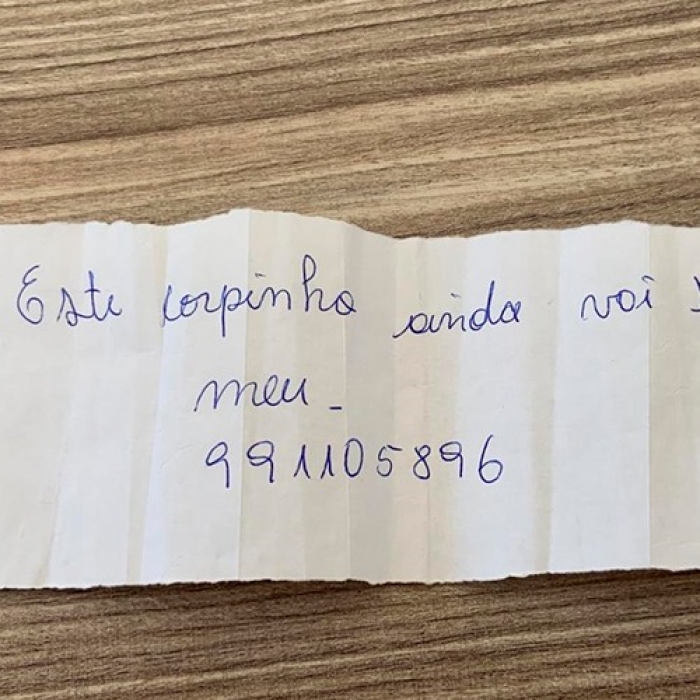 Este corpinho ainda voi
meu_
991105896